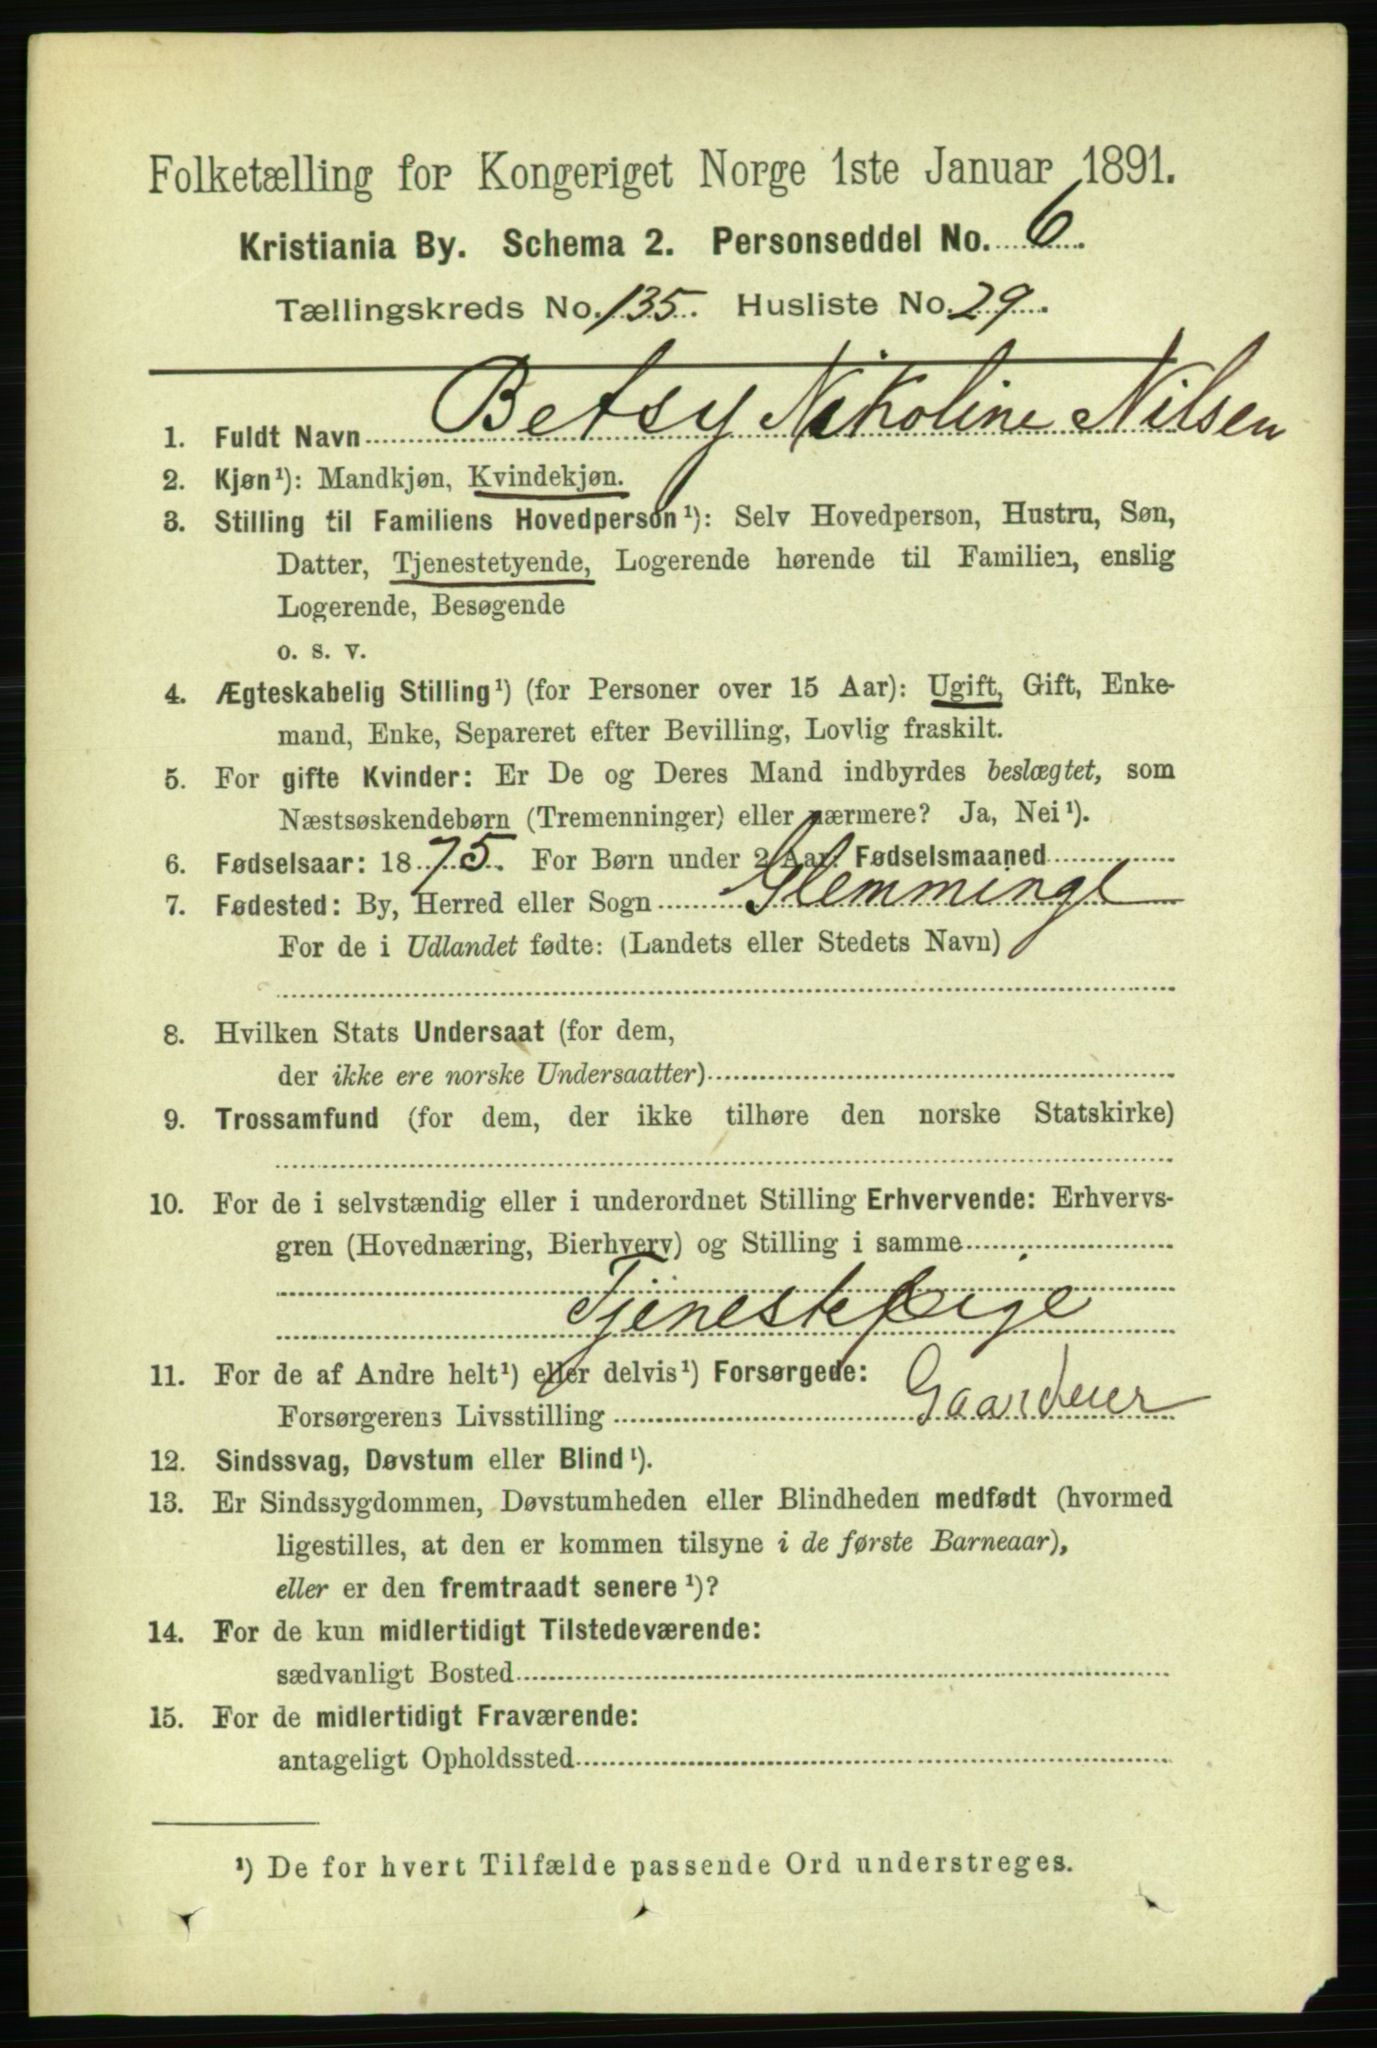 Folketælling for Kongeriget Norge 1ste Januar 1891.
Kristiania By. Schema 2. Personseddel No. 6.
Tællingskreds No. 135. Husliste No. 29.
1. Fuldt Navn Betsy Nikoline Nilsen
2. Kjøn¹): Mandkjøn, Kvindekjøn.
3. Stilling til Familiens Hovedperson¹): Selv Hovedperson, Hustru, Søn,
Datter, Tjenestetyende, Logerende hørende til Familien, enslig
Logerende, Besøgende
o. s. v.
4. Ægteskabelig Stilling¹) (for Personer over 15 Aar): Ugift, Gift, Enke-
mand, Enke, Separeret efter Bevilling, Lovlig fraskilt.
5. For gifte Kvinder: Er De og Deres Mand indbyrdes beslægtet, som
Næstsøskendebørn (Tremenninger) eller nærmere? Ja, Nei¹).
6. Fødselsaar: 1875. For Børn under 2 Aar: Fødselsmaaned
7. Fødested: By, Herred eller Sogn Glemminge
For de i Udlandet fødte: (Landets eller Stedets Navn)
8. Hvilken Stats Undersaat (for dem,
der ikke ere norske Undersaatter)
9. Trossamfund (for dem, der ikke tilhøre den norske Statskirke)
10. For de i selvstændig eller i underordnet Stilling Erhvervende: Erhvervs-
gren (Hovednæring, Bierhverv) og Stilling i samme
Tjenestepige
11. For de af Andre helt¹) eller delvis¹) Forsørgede:
Forsørgerens Livsstilling Gaardeier
12. Sindssvag, Døvstum eller Blind¹).
13. Er Sindssygdommen, Døvstumheden eller Blindheden medfødt (hvormed
ligestilles, at den er kommen tilsyne i de første Barneaar),
eller er den fremtraadt senere¹)?
14. For de kun midlertidigt Tilstedeværende:
sædvanligt Bosted
15. For de midlertidigt Fraværende:
antageligt Opholdssted
¹) De for hvert Tilfælde passende Ord understreges.